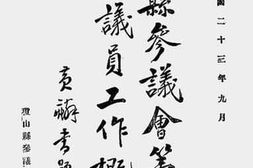 國二十三年九月
縣參議會第
議員工作概
黃麟書題
瓊山縣參議